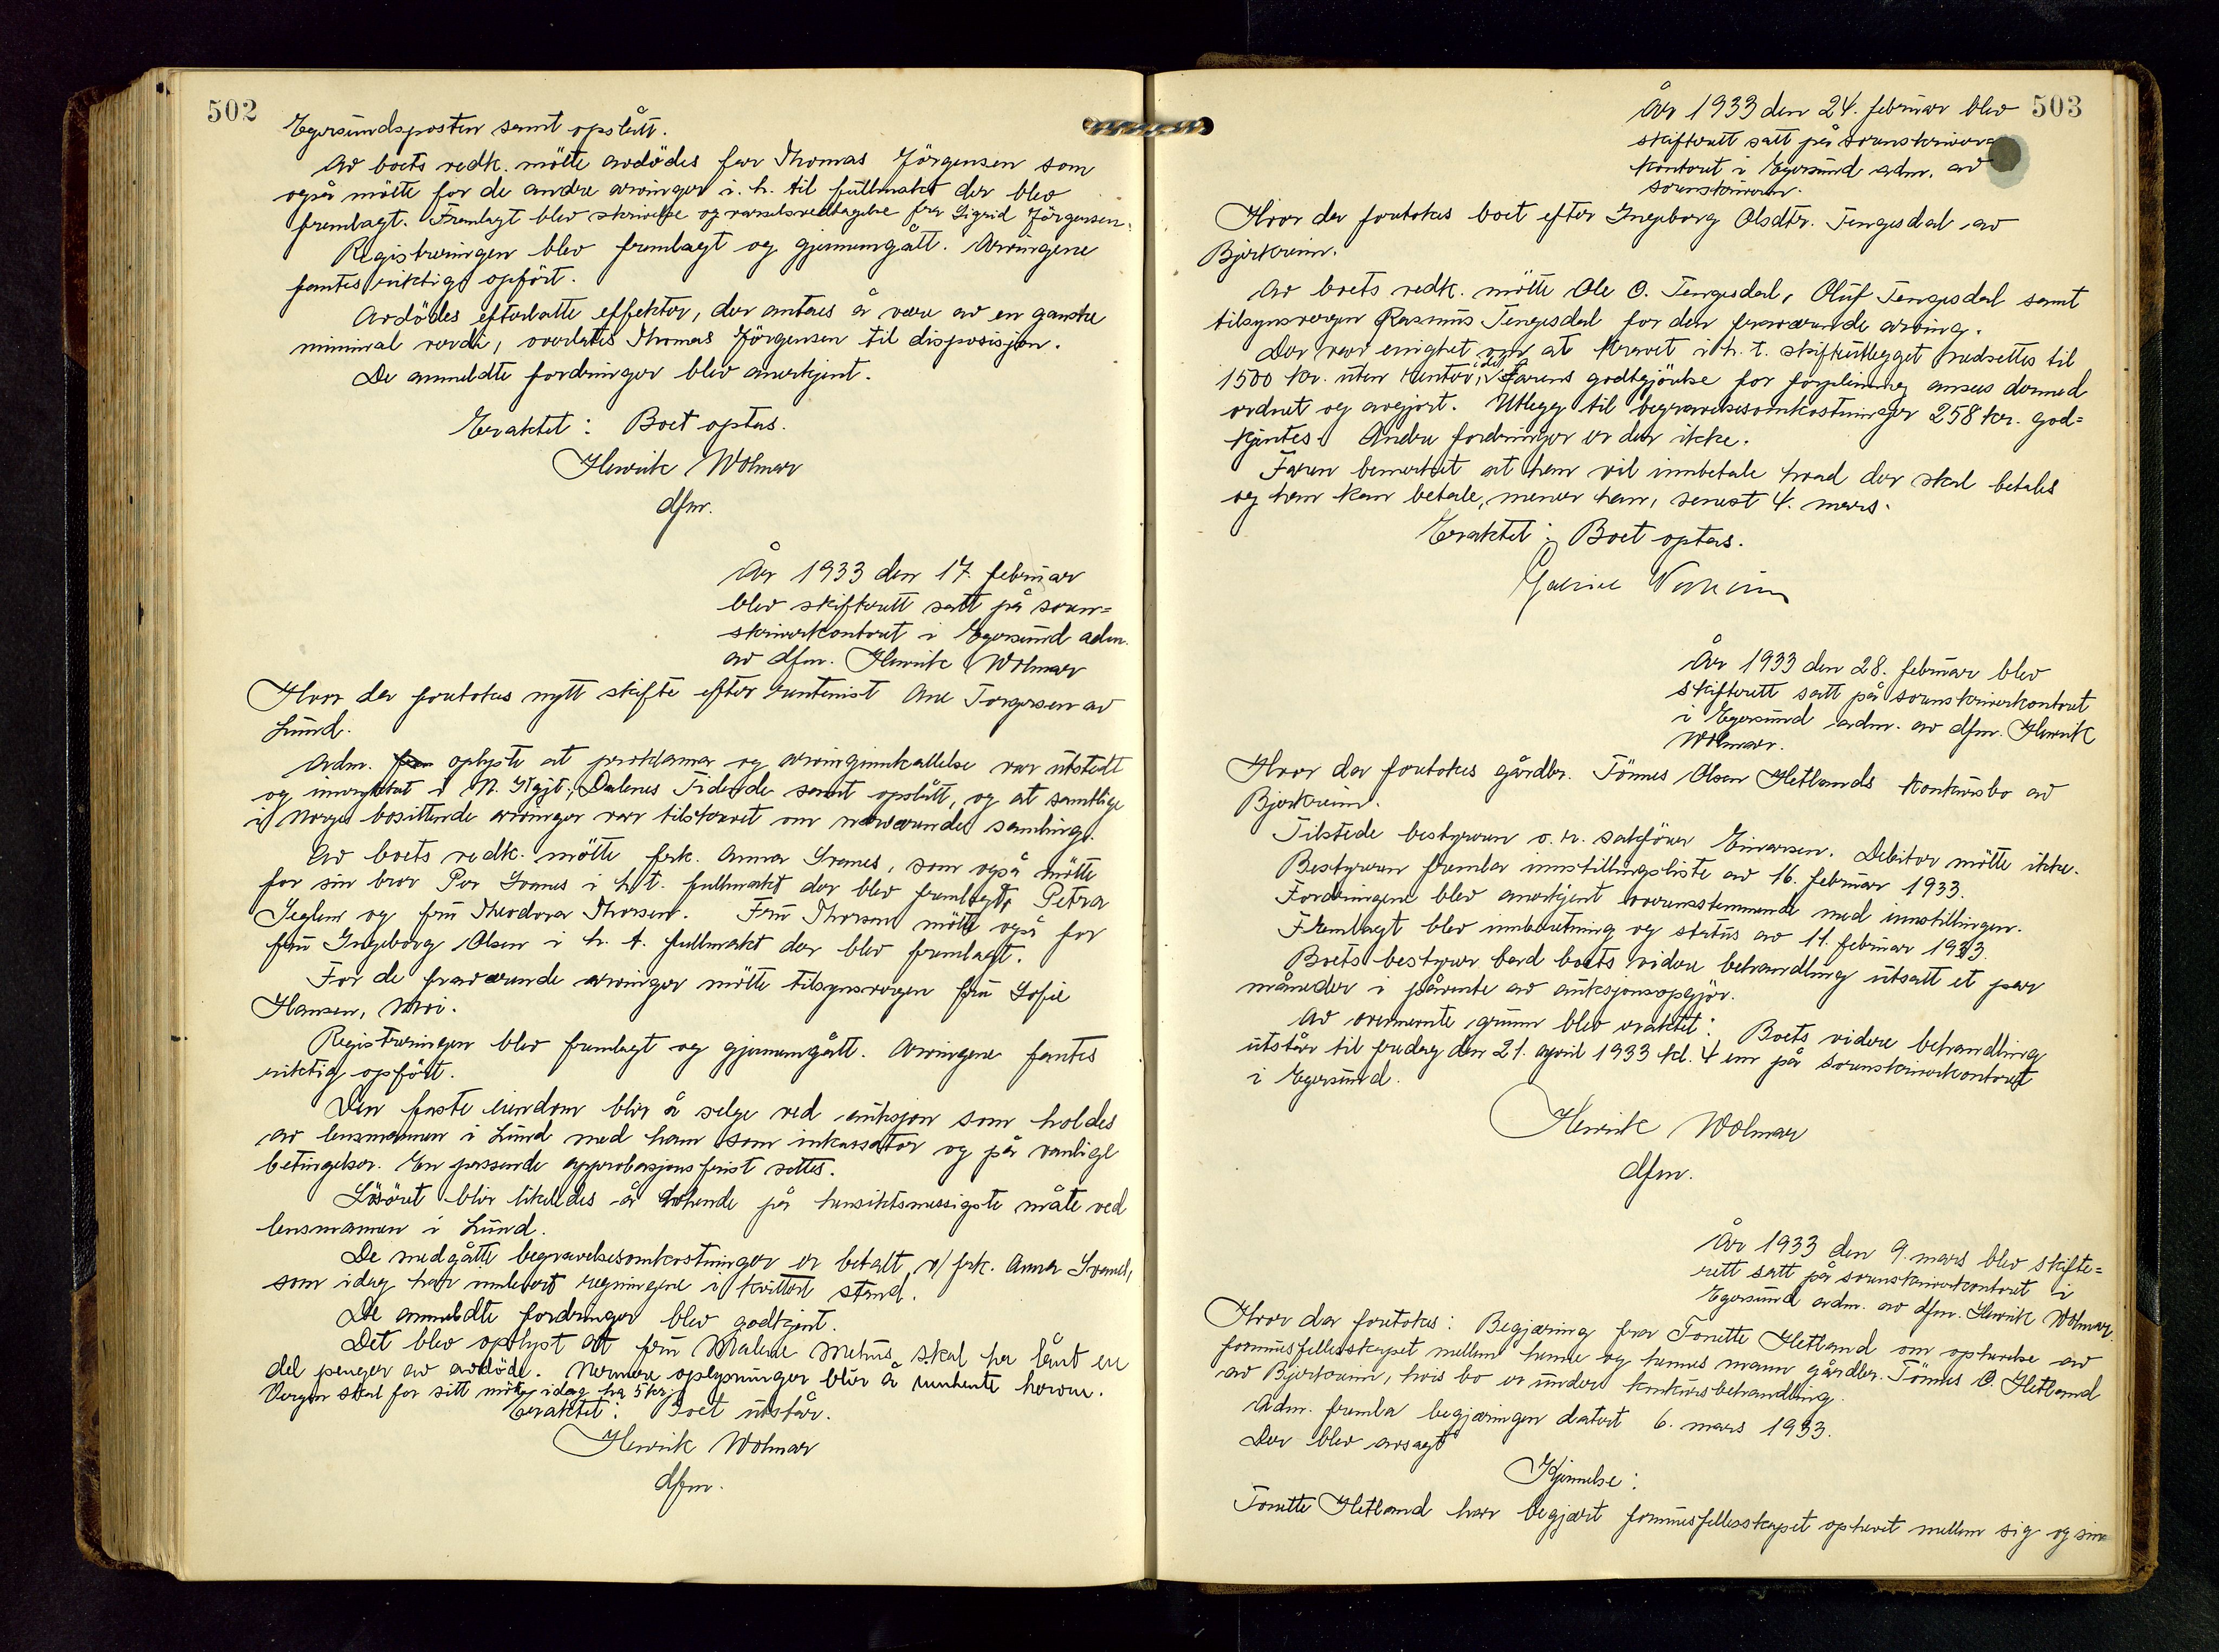 502
Egersundsposten samt opslått.
Av boets vedk. mötte avdödes far Thomas Jörgensen som
også mötte for de andre arvinger i. h. til fullmakt der blev
fremlagt. Fremlagt blev skrivelse og varselsvedtagelse fra Sigrid Jörgensen.
Registreringen blev fremlagt og gjennemgått. Arvingene
fantes riktig opfört.
Avdödes efterlatte effekter, der antaes å være av en ganske
minimal verdi, overlates Thomas Jörgensen til disposisjon.
De anmeldte fordringer blev anerkjent.
Eraktet: Boet optas.
Henrik Wolmar
dfm.
År 1933 den 17. februar
blev skifterett satt på soren=
skriverkontoret i Egersund adm.
av dfm. Henrik Wolmar
Hvor da foretokes nytt skifte efter rentenist Ane Torgersen av
Lund.
Adm. oplyste at proklama og arvinginnkallelse var utstedt
og innrykket i N. Kgjt., Dalenes Tidende samt opslått, og at samtlige
i Norge bosittende arvinger var tilskrevet om nærværende samling.
Av boets vedk. mötte frk. Anna Svanes, som også mötte
for sin bror Per Svanes i h. t. fullmakt der blev fremlagt, Petra
Seglem og fru Theodora Thorsen. Fru Thorsen mötte også for
fru Ingeborg Olsen i h. t. fullmakt der blev fremlagt.
For de fraværende arvinger mötte tilsynsvergen fru Sofie
Hansen, Moi.
Registreringen blev fremlagt og gjennemgått. Arvingene fantes
riktig opfört.
Den faste eiendom blir å selge ved auksjon som holdes
av lensmannen i Lund med ham som inkassator og på vanlige
betingelser. En passende approbasjonsfrist settes.
Lösöret blir likeledes å avhende på hensiktsmessigste måte ved
lensmannen i Lund.
De medgåtte begravelsesomkostninger er betalt v/ frk. Anna Svanes,
som idag har innlevert regningene i kvittert stand.
De anmeldte fordringer blev godkjent.
Det blev oplyst at fru Malene Mehus skal ha lånt en
del penger av avdöde. Nermere oplysninger blir å innhente herom.
Vergen skal for sitt möte idag ha 5 kr.
Eraktet: Boet utstår.
Henrik Wolmar
dfm.
503
År 1933 den 24. februar blev
skifterett satt på sorenskriver
kontoret i Egersund adm. av
sorenskriveren.
Hvor da foretokes boet efter Ingeborg Olsdtr. Tengesdal av
Bjerkreim.
Av boets vedk. mötte Ole O. Tengesdal, Oluf Tengesdal samt
tilsynsvergen Rasmus Tengesdal for den fraværende arving.
Der var enighet om at kravet i h. t. skifteutlegget nedsettes til
1500 kr. uten renter, idet farens godtgjörelse for forpleining ansees dermed
ordnet og avgjort. Utlegg til begravelsesomkostninger 258 kr. god=
kjentes. Andre fordringer er der ikke.
Faren bemerket at han vil innbetale hvad der skal betales
og han kan betale, mener han, senest 4. mars.
Eraktet: Boet optas.
År 1933 den 28. februar blev
skifterett satt på sorenskriverkontoret
i Egersund adm. av dfm. Henrik
Wolmar.
Hvor da foretokes gårdbr. Tönnes Olsen Hetlands konkursbo av
Bjerkreim.
Tilstede bestyreren o. r. sakförer Einarsen. Debitor mötte ikke.
Bestyreren fremla innstillingsliste av 16. februar 1933.
Fordringene blev anerkjent overensstemmende med innstillingen.
Fremlagt blev innberetning og status av 11. februar 1933.
Boets bestyrer bad boets videre behandling utsatt et par
måneder i påvente av auksjonsopgjör.
Av overnevnte grunn blev eraktet: Boets videre behandling
utstår til fredag den 21. april 1933 kl. 4 em på sorenskriverkontoret
i Egersund.
Henrik Wolmar
dfm.
År 1933 den 9. mars blev skifte=
rett satt på sorenskriverkontoret i
Egersund adm. av dfm. Henrik Wolmar.
Hvor da foretokes: Begjæring fra Tonette Hetland om ophevelse av
formuesfellesskapet mellem henne og hennes mann gårdbr. Tönnes O. Hetland
av Bjerkreim, hvis bo er under konkursbehandling.
Adm. fremla begjæringen datert 6. mars 1933.
Der blev avsagt
Kjennelse:
Tonette Hetland har begjært formuesfellesskapet ophevet mellem sig og sin